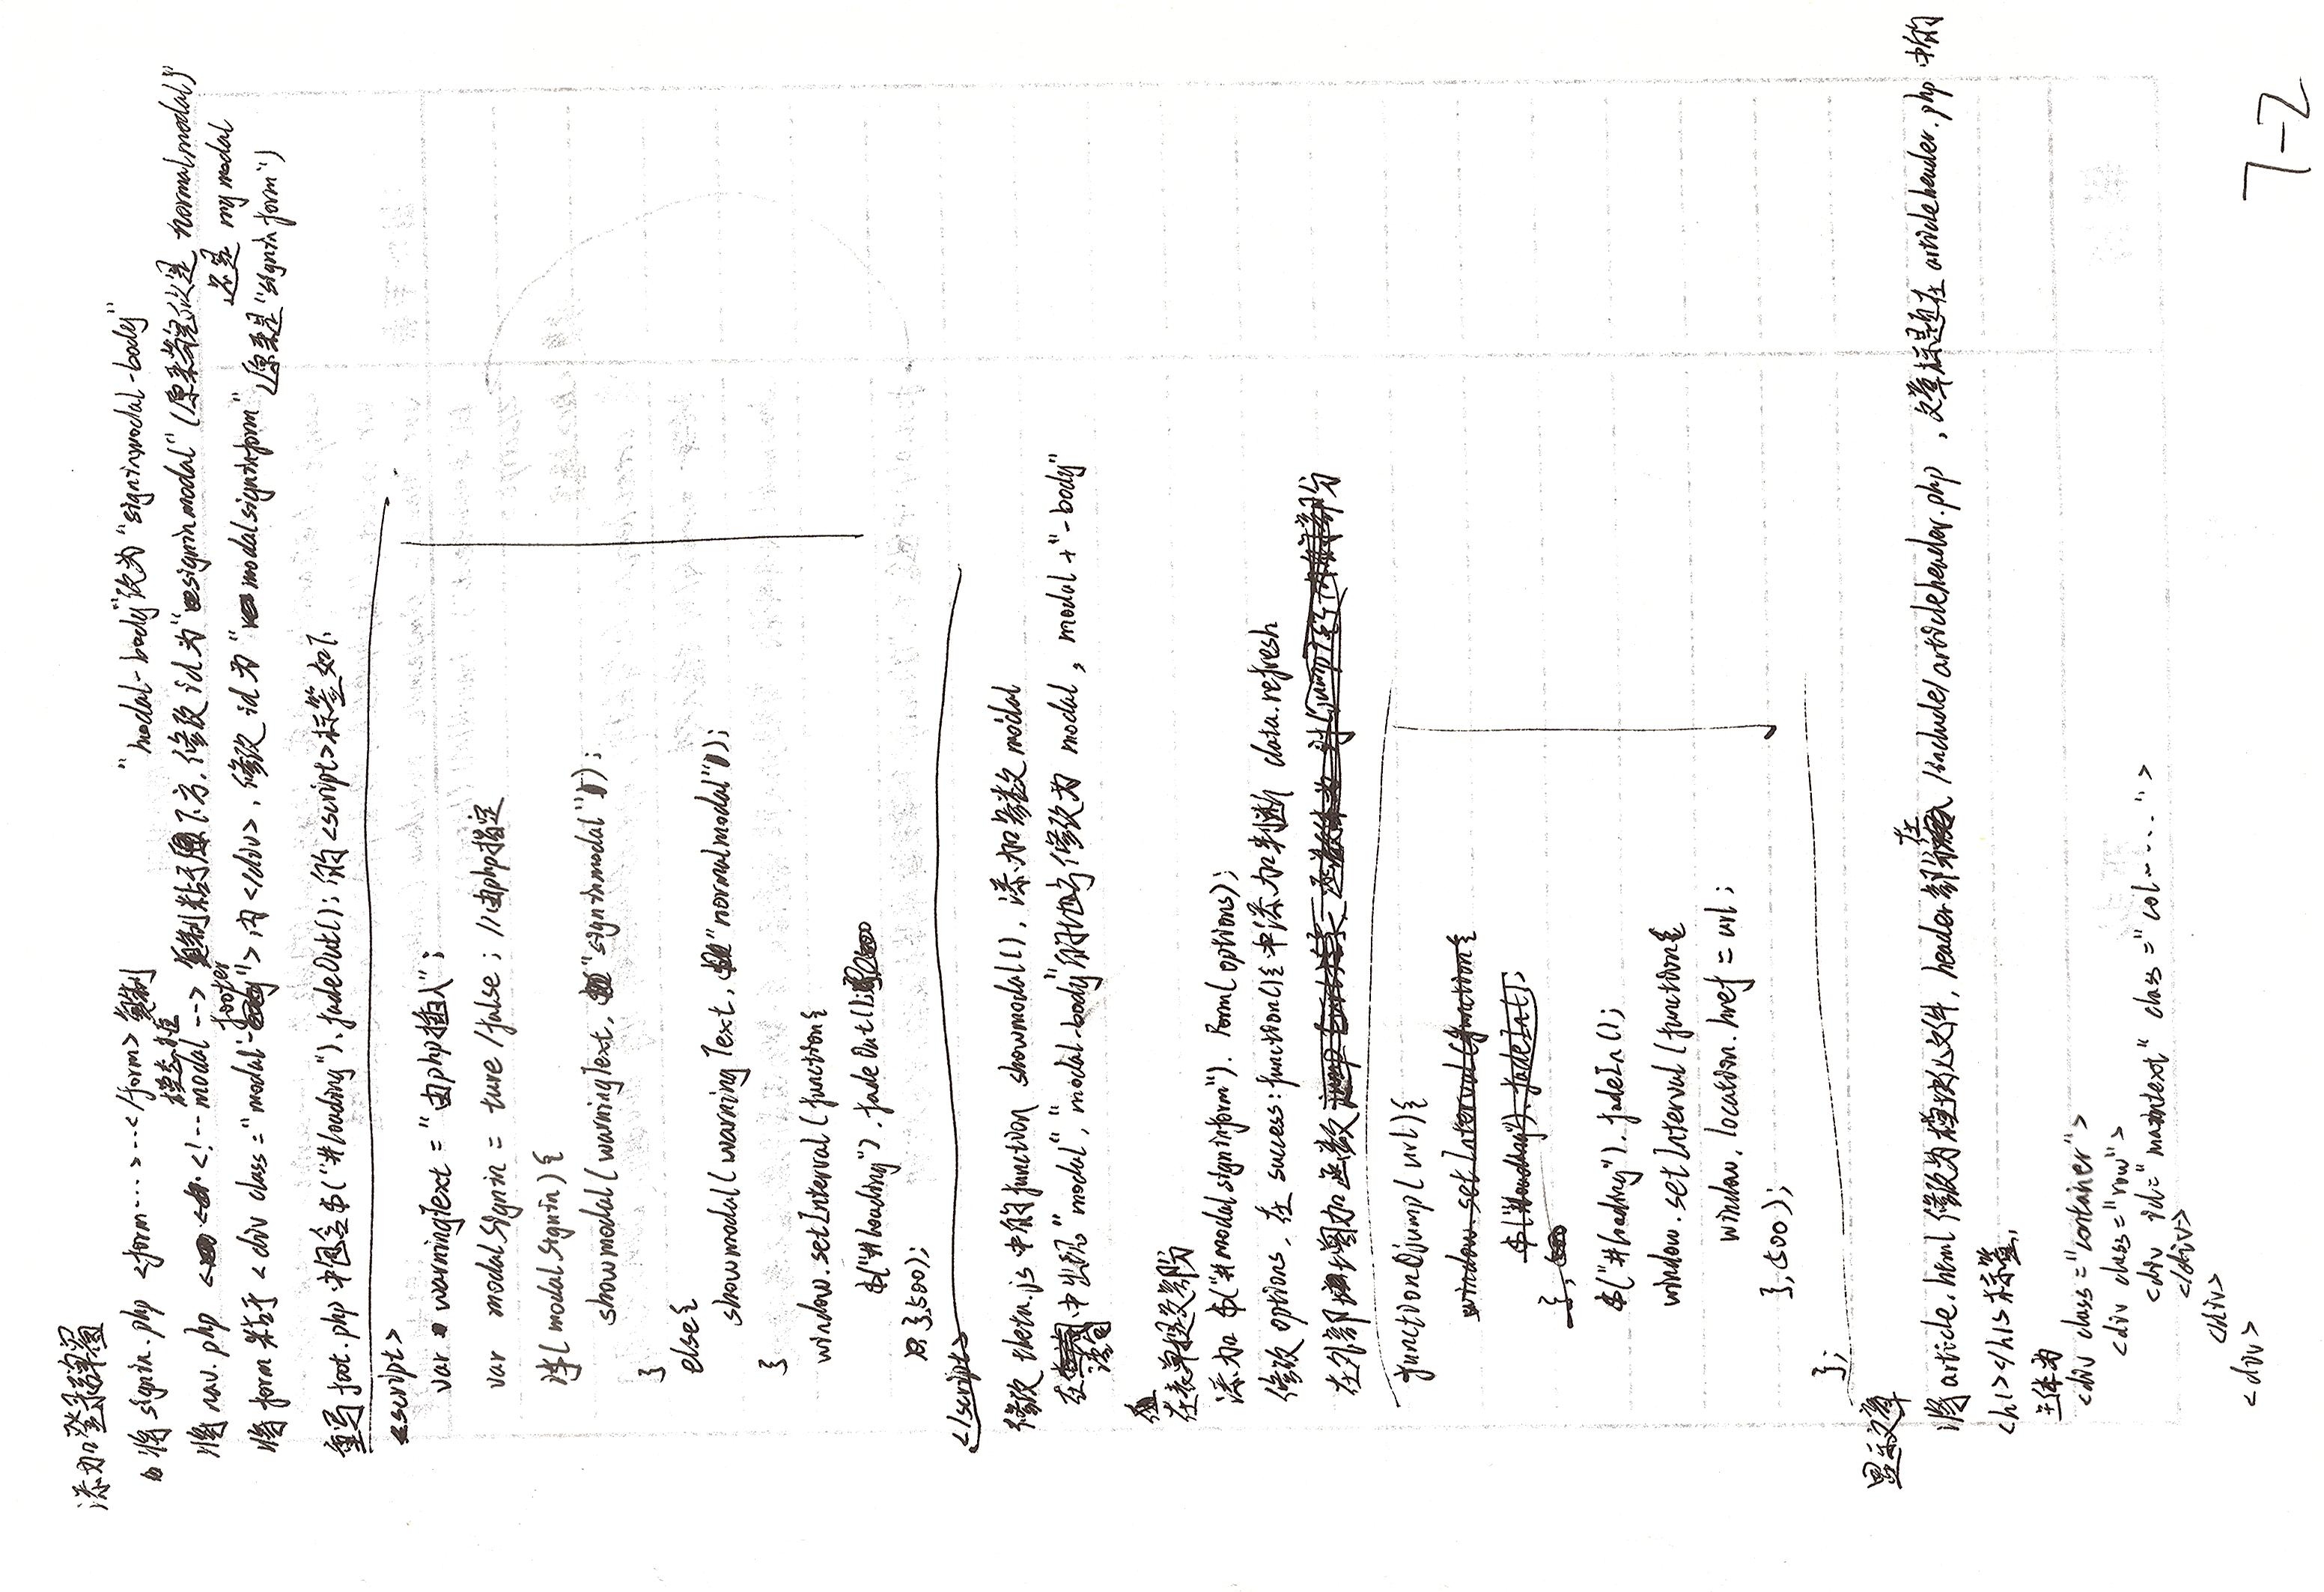 添加登录弹窗
将 signin.php <form……>……</form> 复制
"modal-body"改为"signinmodal-body"
将 nav.php <!-- 模态框 modal --> 复制粘于下方,修改 id 为 "signinmodal" (原来 是 normalmodal)
还是 mymodal
将 form 粘于 <div class="modal-footer">内</div>,修改 id 为 "modalsigninform" (原来是"signinform")
重写 foot.php 中包含 $("#loading").fadeOut(); 的 <script> 标签如下
<script>
var warningText = "由php插入";
var modalSignin = ture/false; //由php指定
if(modalSignin){
showmodal(warningText, "signinmodal");
}
else{
showmodal(warningText, "normalmodal");
}
window.setInterval(function{
$("#loading").fadeOut();
},500);
</script>
修改 theta.js 中的 function showmodal(), 添加参数 modal
在语句中出现"modal","modal-body"的地方修改为 modal, modal+"-body"
在表单提交部份
添加 $("#modalsigninform").Form(options);
修改 options, 在 success:function(){ 中添加判断 data.refresh
在外部增加函数
function jump(url){
window.setInterval(function{
$("#loading").fadeIn();
},
$("#loading").fadeIn();
window.setInterval(function{
window.location.href = url;
},500);
};
显示文章
将 article.html 修改为模块化文件, header 部分在 /include/articleheader.php ,文章标题在 articleheader.php 中的
<h1></h1> 标签,
主体为
<div class="container">
<div class="row">
<div id="maintext" class="col-....">
</div>
</div>
<div>
7-2